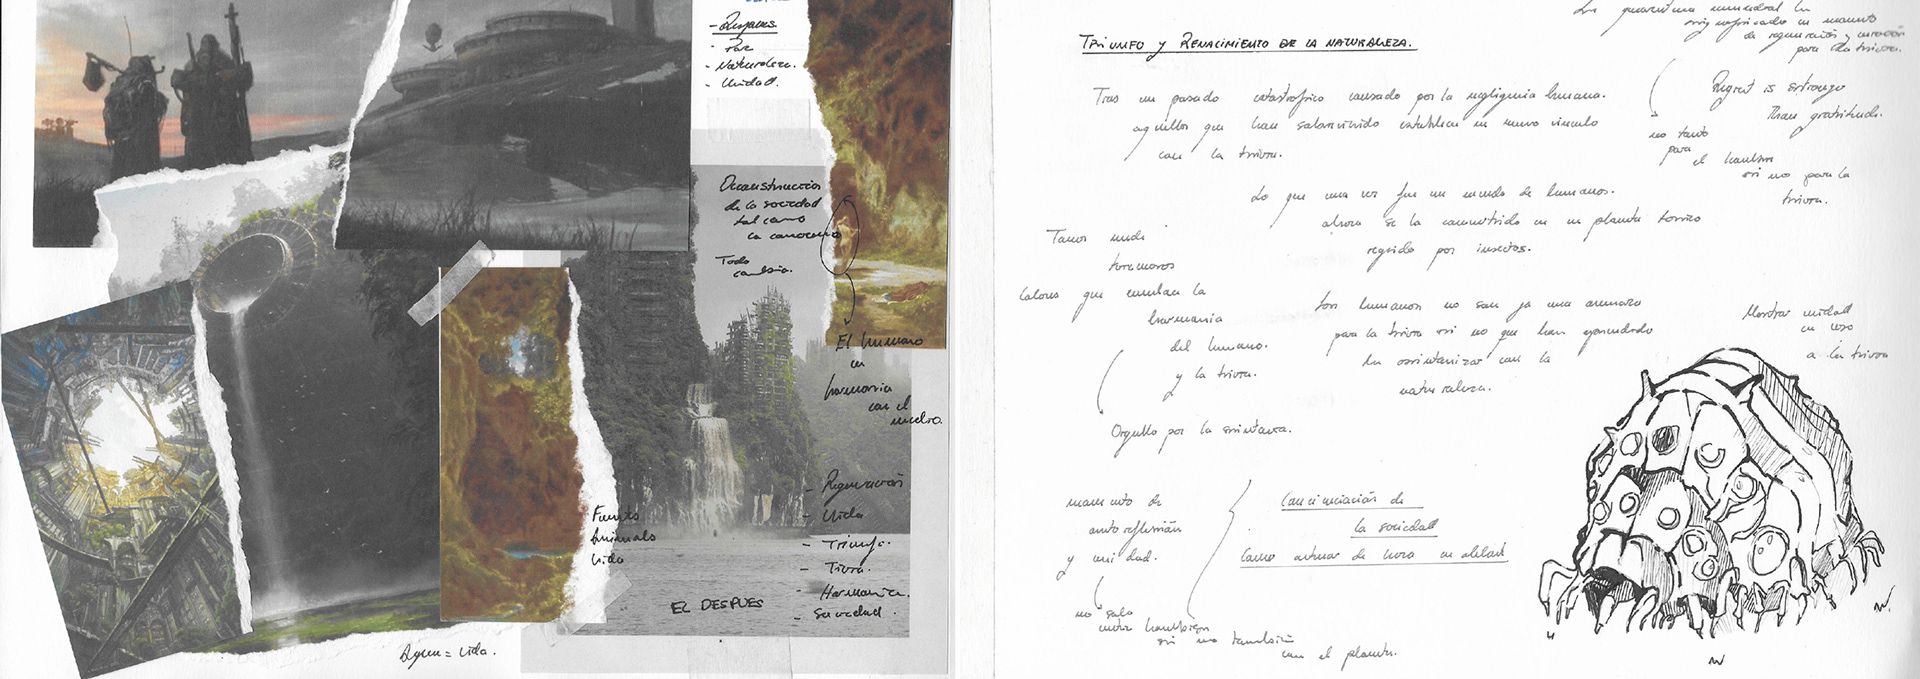 - Después
- Paz
- Naturaleza.
- Unidad.
Deconstrucción
de la sociedad
tal como
la conocemos
Todo
cambia.
El humano
en
harmonia
con el
medio.
- Regeneración
- Vida
- Triunfo.
- Tierra.
- Harmonia.
- Sociedad.
Animals
Vida
EL DESPUES
Agua = Vida.
TRIUNFO Y RENACIMIENTO DE LA NATURALEZA.
Tras un pasado catastrofico causado por la negligencia humana.
aquellos que han sobrevivido establecen un nuevo vinculo
con la tierra.
Lo que una vez fue un mundo de humanos.
ahora se la convertido en un planeta
regido por insectos.
Los humanos no son ya una amenaza
para la tierra si no que han aprendido
ha con la
naturaleza.
valores que la
harmonia
del humano.
y la tierra.
Orgullo por la
momento de
autoreflexión
y unidad.
no solo
entre
si no también
con el planeta.
Concienciación de
la sociedad
como actuar de hora en
La mundial ha
significado un momento
de regeneración y curación
para la tierra.
Regret is stronger
Than gratitude.
no tanto
para
el hombre
si no para la
tierra.
Mostrar unidad
a la tierra